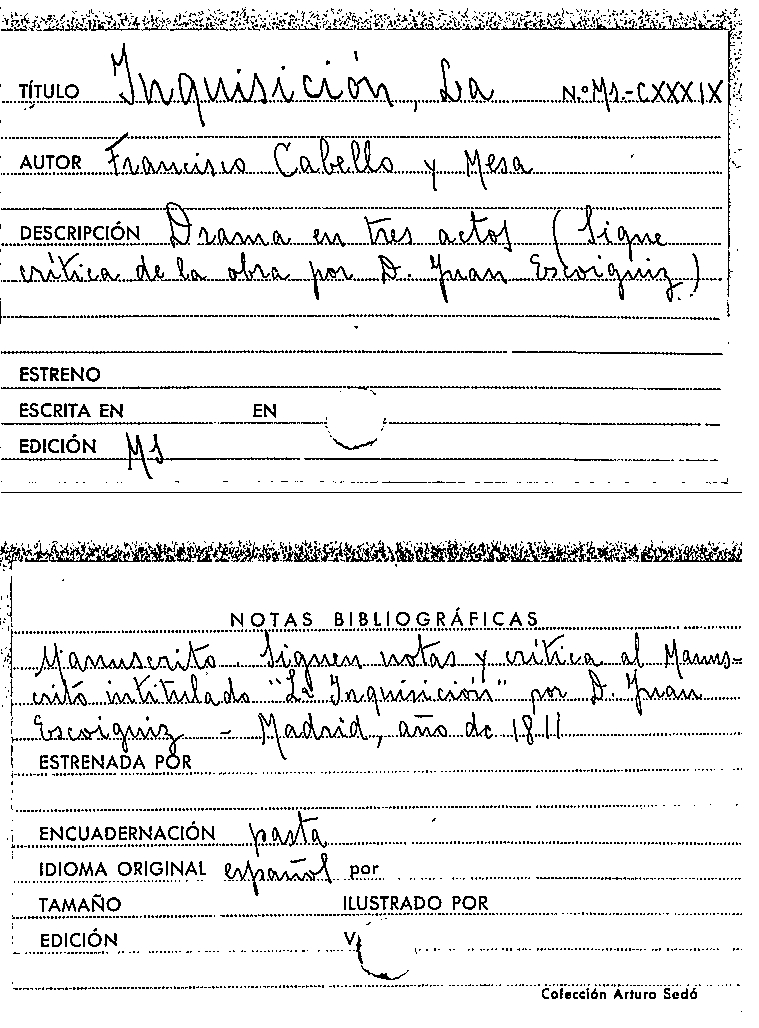 TÍTULO Inquisición, La N.º Ms.-CXXXIX
AUTOR Francisco Cabello y Mesa
DESCRIPCIÓN Drama en tres actos (Sigue
crítica de la obra por D. Juan Escoiquiz.)
ESTRENO
ESCRITA EN EN
EDICIÓN Ms
NOTAS BIBLIOGRÁFICAS
Manuscrito Siguen notas y crítica al Manus-
crito intitulado "La Inquisición" por D. Juan
Escoiquiz - Madrid, año de 1811
ESTRENADA POR
ENCUADERNACIÓN pasta
IDIOMA ORIGINAL español por
TAMAÑO ILUSTRADO POR
EDICIÓN V
Colección Arturo Sedó